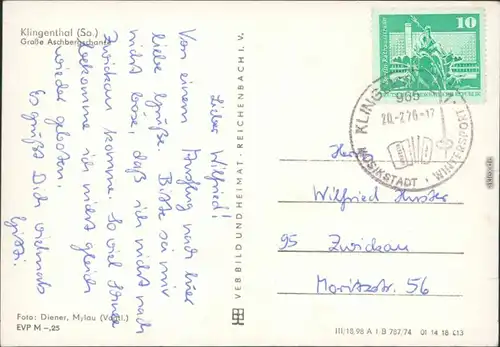 Klingenthal (Sa.)
Große Aschbergschanze
Lieber Wilfried!
Von einem Ausflug nach hier
liebe Grüße. Bitte sei mir
nicht böse, daß ich nicht nach
Zwickau komme. So viel Schnee
bekomme ich nicht gleich
wieder geboten.
Es grüßt Dich vielmals
Foto: Diener, Mylau (Vogtl.)
EVP M –,25
VEB BILD UND HEIMAT · REICHENBACH I. V.
10
DEUTSCHE DEMOKRATISCHE REPUBLIK
KLINGENTHAL
965
20.-2.76-17
MUSIKSTADT · WINTERSPORT
Herrn
Wilfried
95 Zwickau
Moritzstr. 56
III/18/98 A 1 B 787/74 01 14 18 013